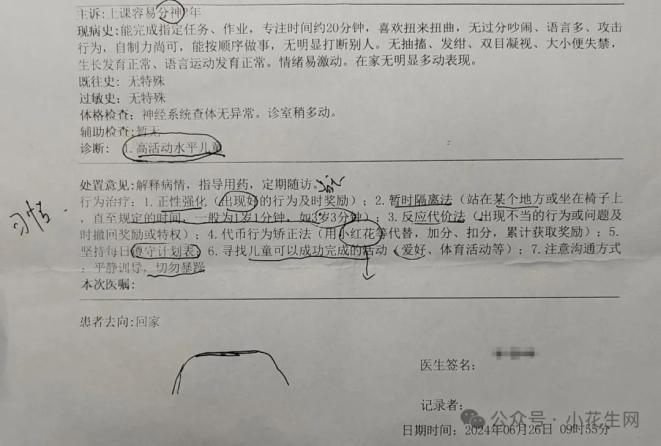 主诉:上课容易分神2年
现病史:能完成指定任务、作业,专注时间约20分钟,喜欢扭来扭曲,无过分吵闹、语言多、攻击
行为,自制力尚可,能按顺序做事,无明显打断别人。无抽搐、发绀、双目凝视、大小便失禁,
生长发育正常、语言运动发育正常。情绪易激动。在家无明显多动表现。
既往史:无特殊
过敏史:无特殊
体格检查:神经系统查体无异常。诊室稍多动。
辅助检查:暂无
诊断: 1.高活动水平儿童
处置意见:解释病情,指导用药,定期随访
行为治疗:1.正性强化(出现好的行为及时奖励);2.暂时隔离法(站在某个地方或坐在椅子上
,直至规定的时间,一般为1岁1分钟,如3岁3分钟);3.反应代价法(出现不当的行为或问题及
时撤回奖励或特权);4.代币行为矫正法(用小红花等代替,加分、扣分,累计获取奖励);5.
坚持每日遵守计划表。6.寻找儿童可以成功完成的活动(爱好、体育活动等);7.注意沟通方式
:平静训导,切勿暴躁
本次医嘱:
习惯
患者去向:回家
医生签名:
记录者:
公众号·小花生网
日期时间:2024年06月26日 09时55分